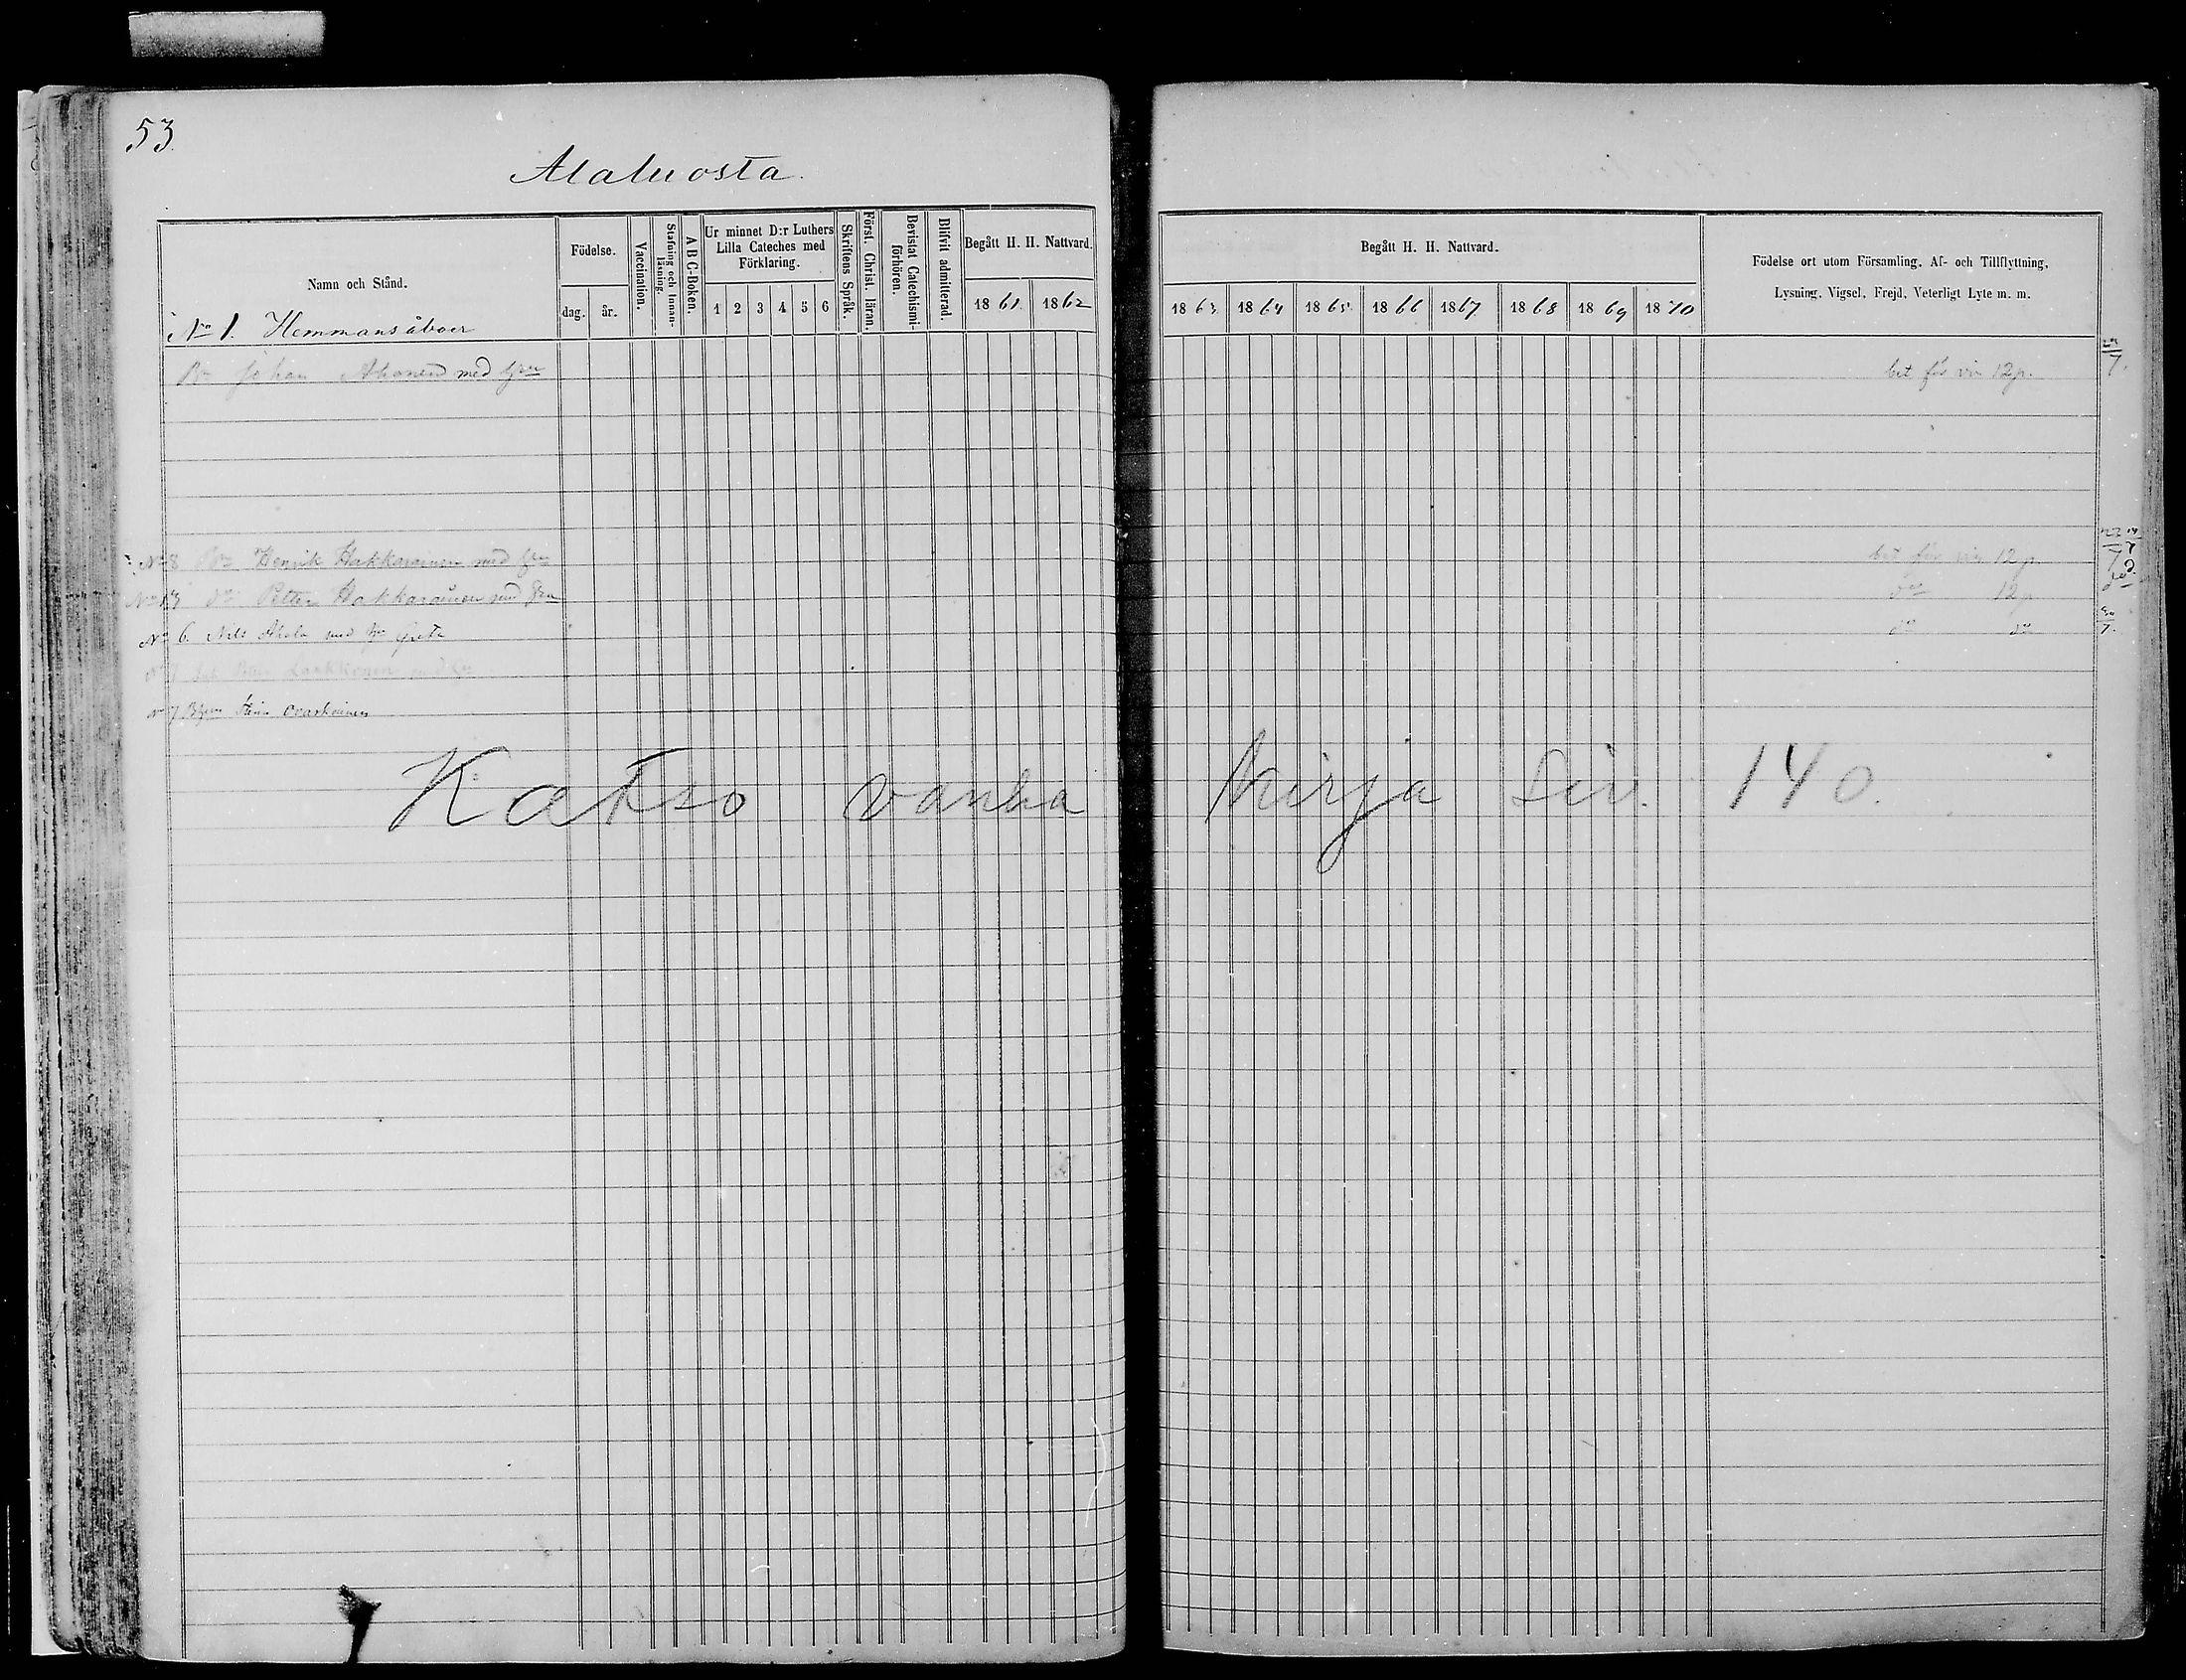 53.
Alaluosta.
Namn och Stånd.
Födelse.
dag. år.
Vaccination.
Stafning och Innanläsning.
A B C-Boken.
Ur minnet D:r Luthers Lilla Cateches med Förklaring.
1 2 3 4 5 6
Skriftens Språk.
Först. Christ. läran.
Bevistat Catechismiförhören.
Blifvit admitterad.
Begått H. H. Nattvard.
1861. 1862
Begått H. H. Nattvard.
1863 1864 1865 1866 1867 1868 1869 1870
Födelse ort utom Församling, Af- och Tillflyttning,
Lysning, Vigsel, Frejd, Veterligt Lyte m. m.
No 1. Hemmansåboer
Bn Johan Ahonen med hru bet för vin 12p.
No 8 Henrik Hakkarainen med hru bet för vin 12p.
No 13 do Petter Hakkarainen med hru do 12p
No 6. Nils Ahola med hru Greta do do
Laakkonen
No 7 Ovaskainen
Katso vanha kirja siv. 140.